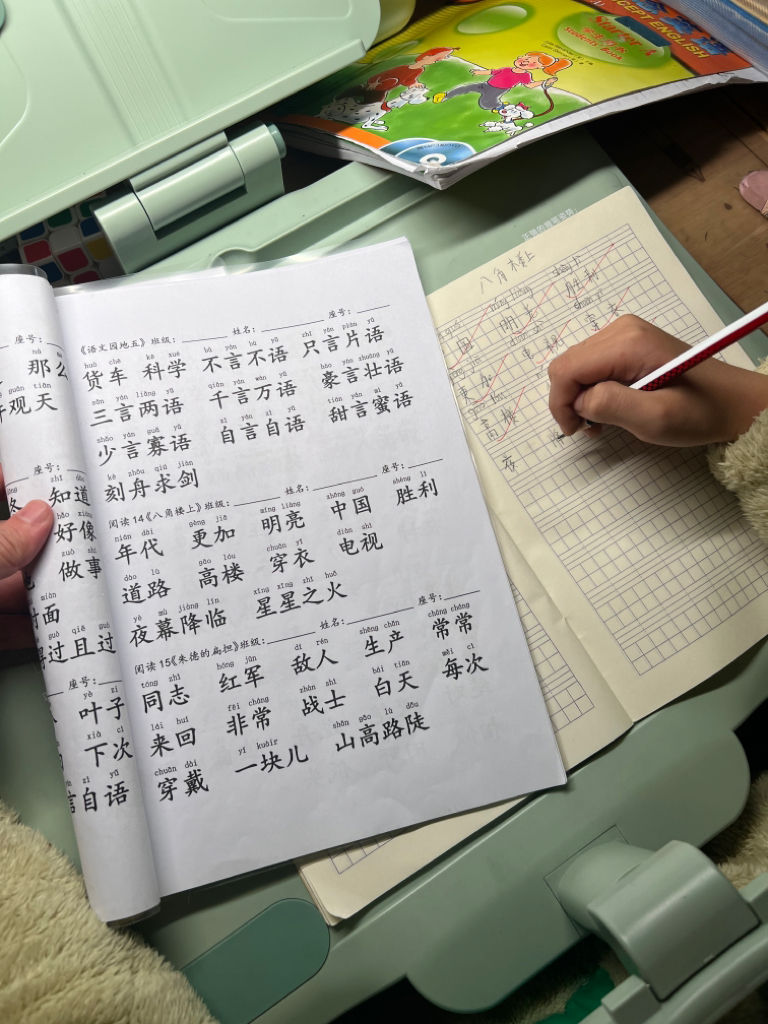 CEPT ENGLISH
Students' Book
座号:
nà
那么
guān tiān
观天
座号:
zhī dào
知道
hǎo xiàng
好像
zuò shì
做事
miàn
对面
guò qiě guò
得过且过
座号:
yè zi
叶子
xià cì
下次
zì yǔ
言自语
《语文园地五》班级: 姓名: 座号:
huò chē kē xué bù yán bù yǔ zhī yán piàn yǔ
货车 科学 不言不语 只言片语
sān yán liǎng yǔ qiān yán wàn yǔ háo yán zhuàng yǔ
三言两语 千言万语 豪言壮语
shǎo yán guǎ yǔ zì yán zì yǔ tián yán mì yǔ
少言寡语 自言自语 甜言蜜语
kè zhōu qiú jiàn
刻舟求剑
阅读 14《八角楼上》班级: 姓名: 座号:
nián dài gèng jiā míng liàng zhōng guó shèng lì
年代 更加 明亮 中国 胜利
dào lù gāo lóu chuān yī diàn shì
道路 高楼 穿衣 电视
yè mù jiàng lín xīng xīng zhī huǒ
夜幕降临 星星之火
阅读 15《朱德的扁担》班级: 姓名: 座号:
tóng zhì hóng jūn dí rén shēng chǎn cháng cháng
同志 红军 敌人 生产 常常
lái huí fēi cháng zhàn shì bái tiān měi cì
来回 非常 战士 白天 每次
chuān dài yí kuàir shān gāo lù dǒu
穿戴 一块儿 山高路陡
八角楼上
国 明 胜利
更加 电视 穿衣
高楼
夜